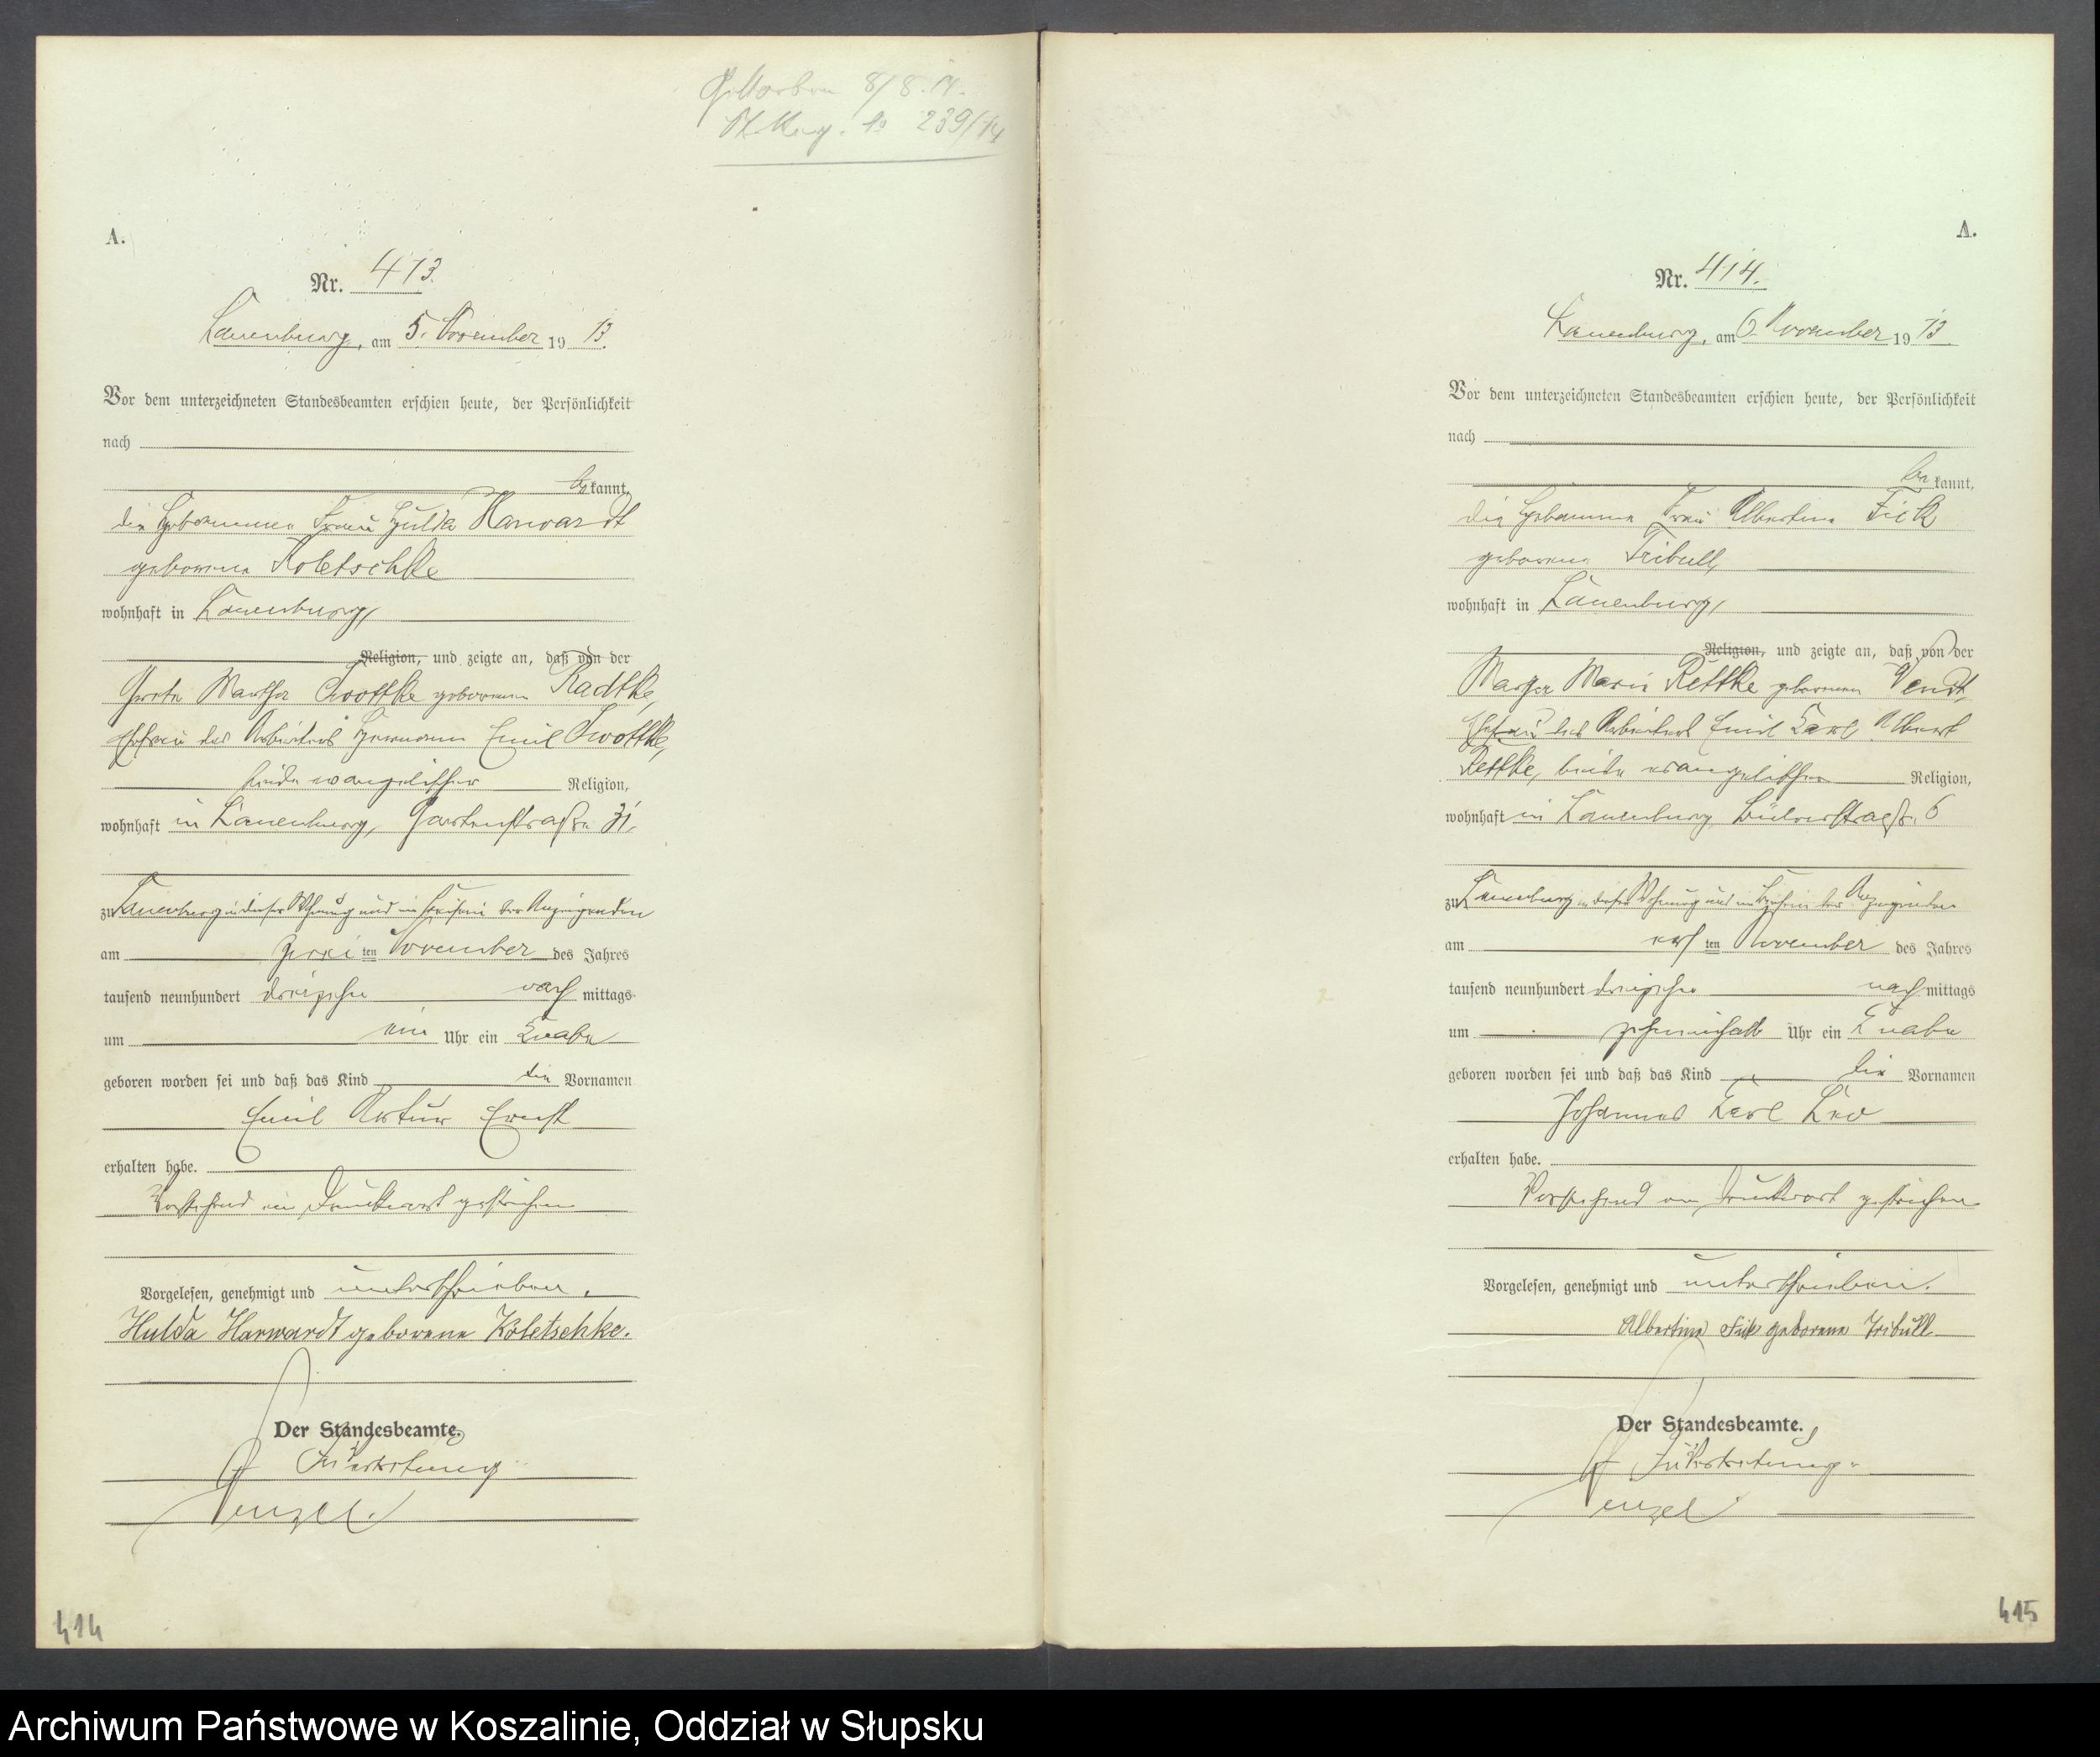 Gestorben 8/8.14.
St. Reg. No 239/14
A.
Nr. 413.
Lauenburg, am 5. November 1913.
Vor dem unterzeichneten Standesbeamten erschien heute, der Persönlichkeit
nach
bekannt,
die Hebamme Frau Hulda Harwardt
geborene Koletschke
wohnhaft in Lauenburg,
Religion, und zeigte an, daß von der
Martha geborenen Radtke,
Ehefrau des Arbeiters Hermann Emil
beide evangelischer Religion,
wohnhaft in Lauenburg, Gartenstraße 31,
zu Lauenburg in dieser Wohnung und im Beisein der Anzeigenden
am zweiten November des Jahres
tausend neunhundert dreizehn nachmittags
um ein Uhr ein Knabe
geboren worden sei und daß das Kind die Vornamen
Emil Artur Ernst
erhalten habe.
Vorstehend ein Druckwort gestrichen
Vorgelesen, genehmigt und unterschrieben.
Hulda Harwardt geborene Koletschke.
Der Standesbeamte.
In Vertretung
Wenzel.
414
A.
Nr. 414.
Lauenburg, am 6. November 1913.
Vor dem unterzeichneten Standesbeamten erschien heute, der Persönlichkeit
nach
bekannt,
die Hebamme Frau Albertine Fick
geborene Tribull,
wohnhaft in Lauenburg,
Religion, und zeigte an, daß von der
Marie Rettke geborenen Wendt,
Ehefrau des Arbeiters Emil Karl Albert
Rettke, beide evangelischer Religion,
wohnhaft in Lauenburg Bülowstraße 6
zu Lauenburg in dieser Wohnung und im Beisein der Anzeigenden
am ersten November des Jahres
tausend neunhundert dreizehn nachmittags
um zehneinhalb Uhr ein Knabe
geboren worden sei und daß das Kind die Vornamen
Johannes Karl Leo
erhalten habe.
Vorstehend ein Druckwort gestrichen
Vorgelesen, genehmigt und unterschrieben.
Albertine Fick geborene Tribull
Der Standesbeamte.
In Vertretung
Wenzel
415
Archiwum Państwowe w Koszalinie, Oddział w Słupsku